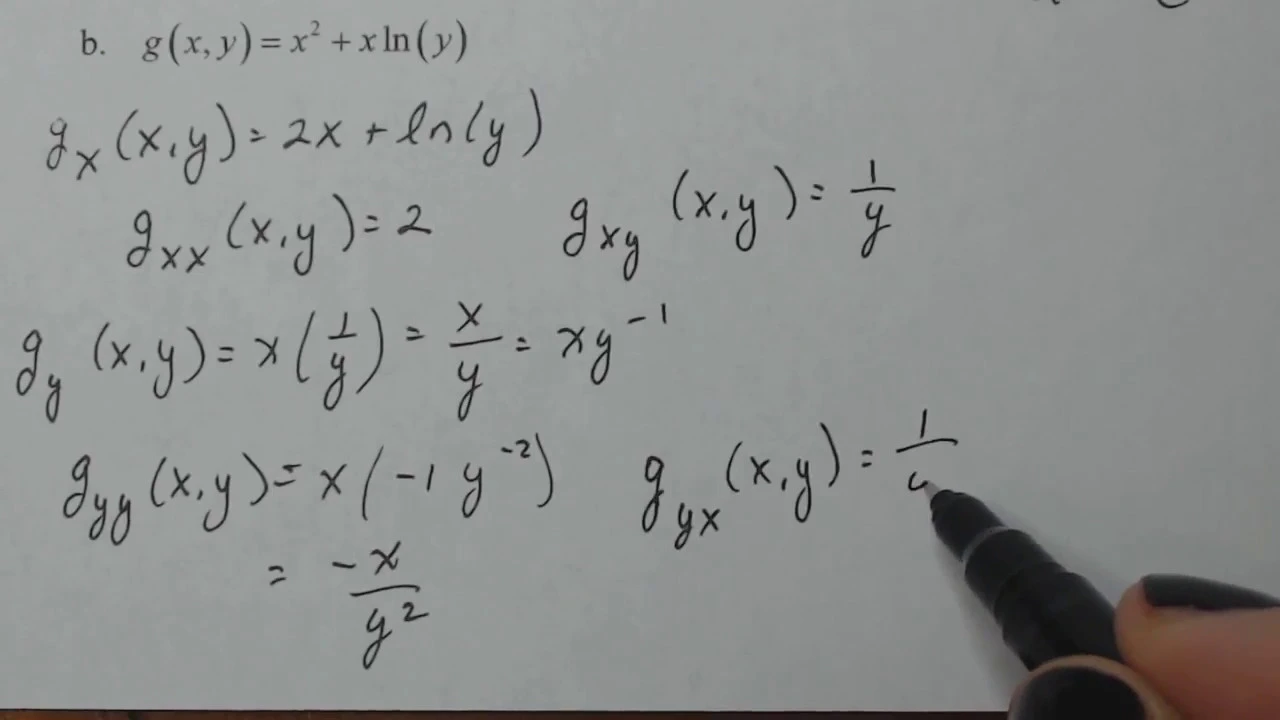 b. g(x,y)=x²+xln(y)
gₓ(x,y)=2x+ln(y)
gₓₓ(x,y)=2 g_xy(x,y)=1/y
g_y(x,y)=x(1/y)=x/y=xy⁻¹
g_yy(x,y)=x(-1y⁻²) g_yx(x,y)=1/
=-x/y²